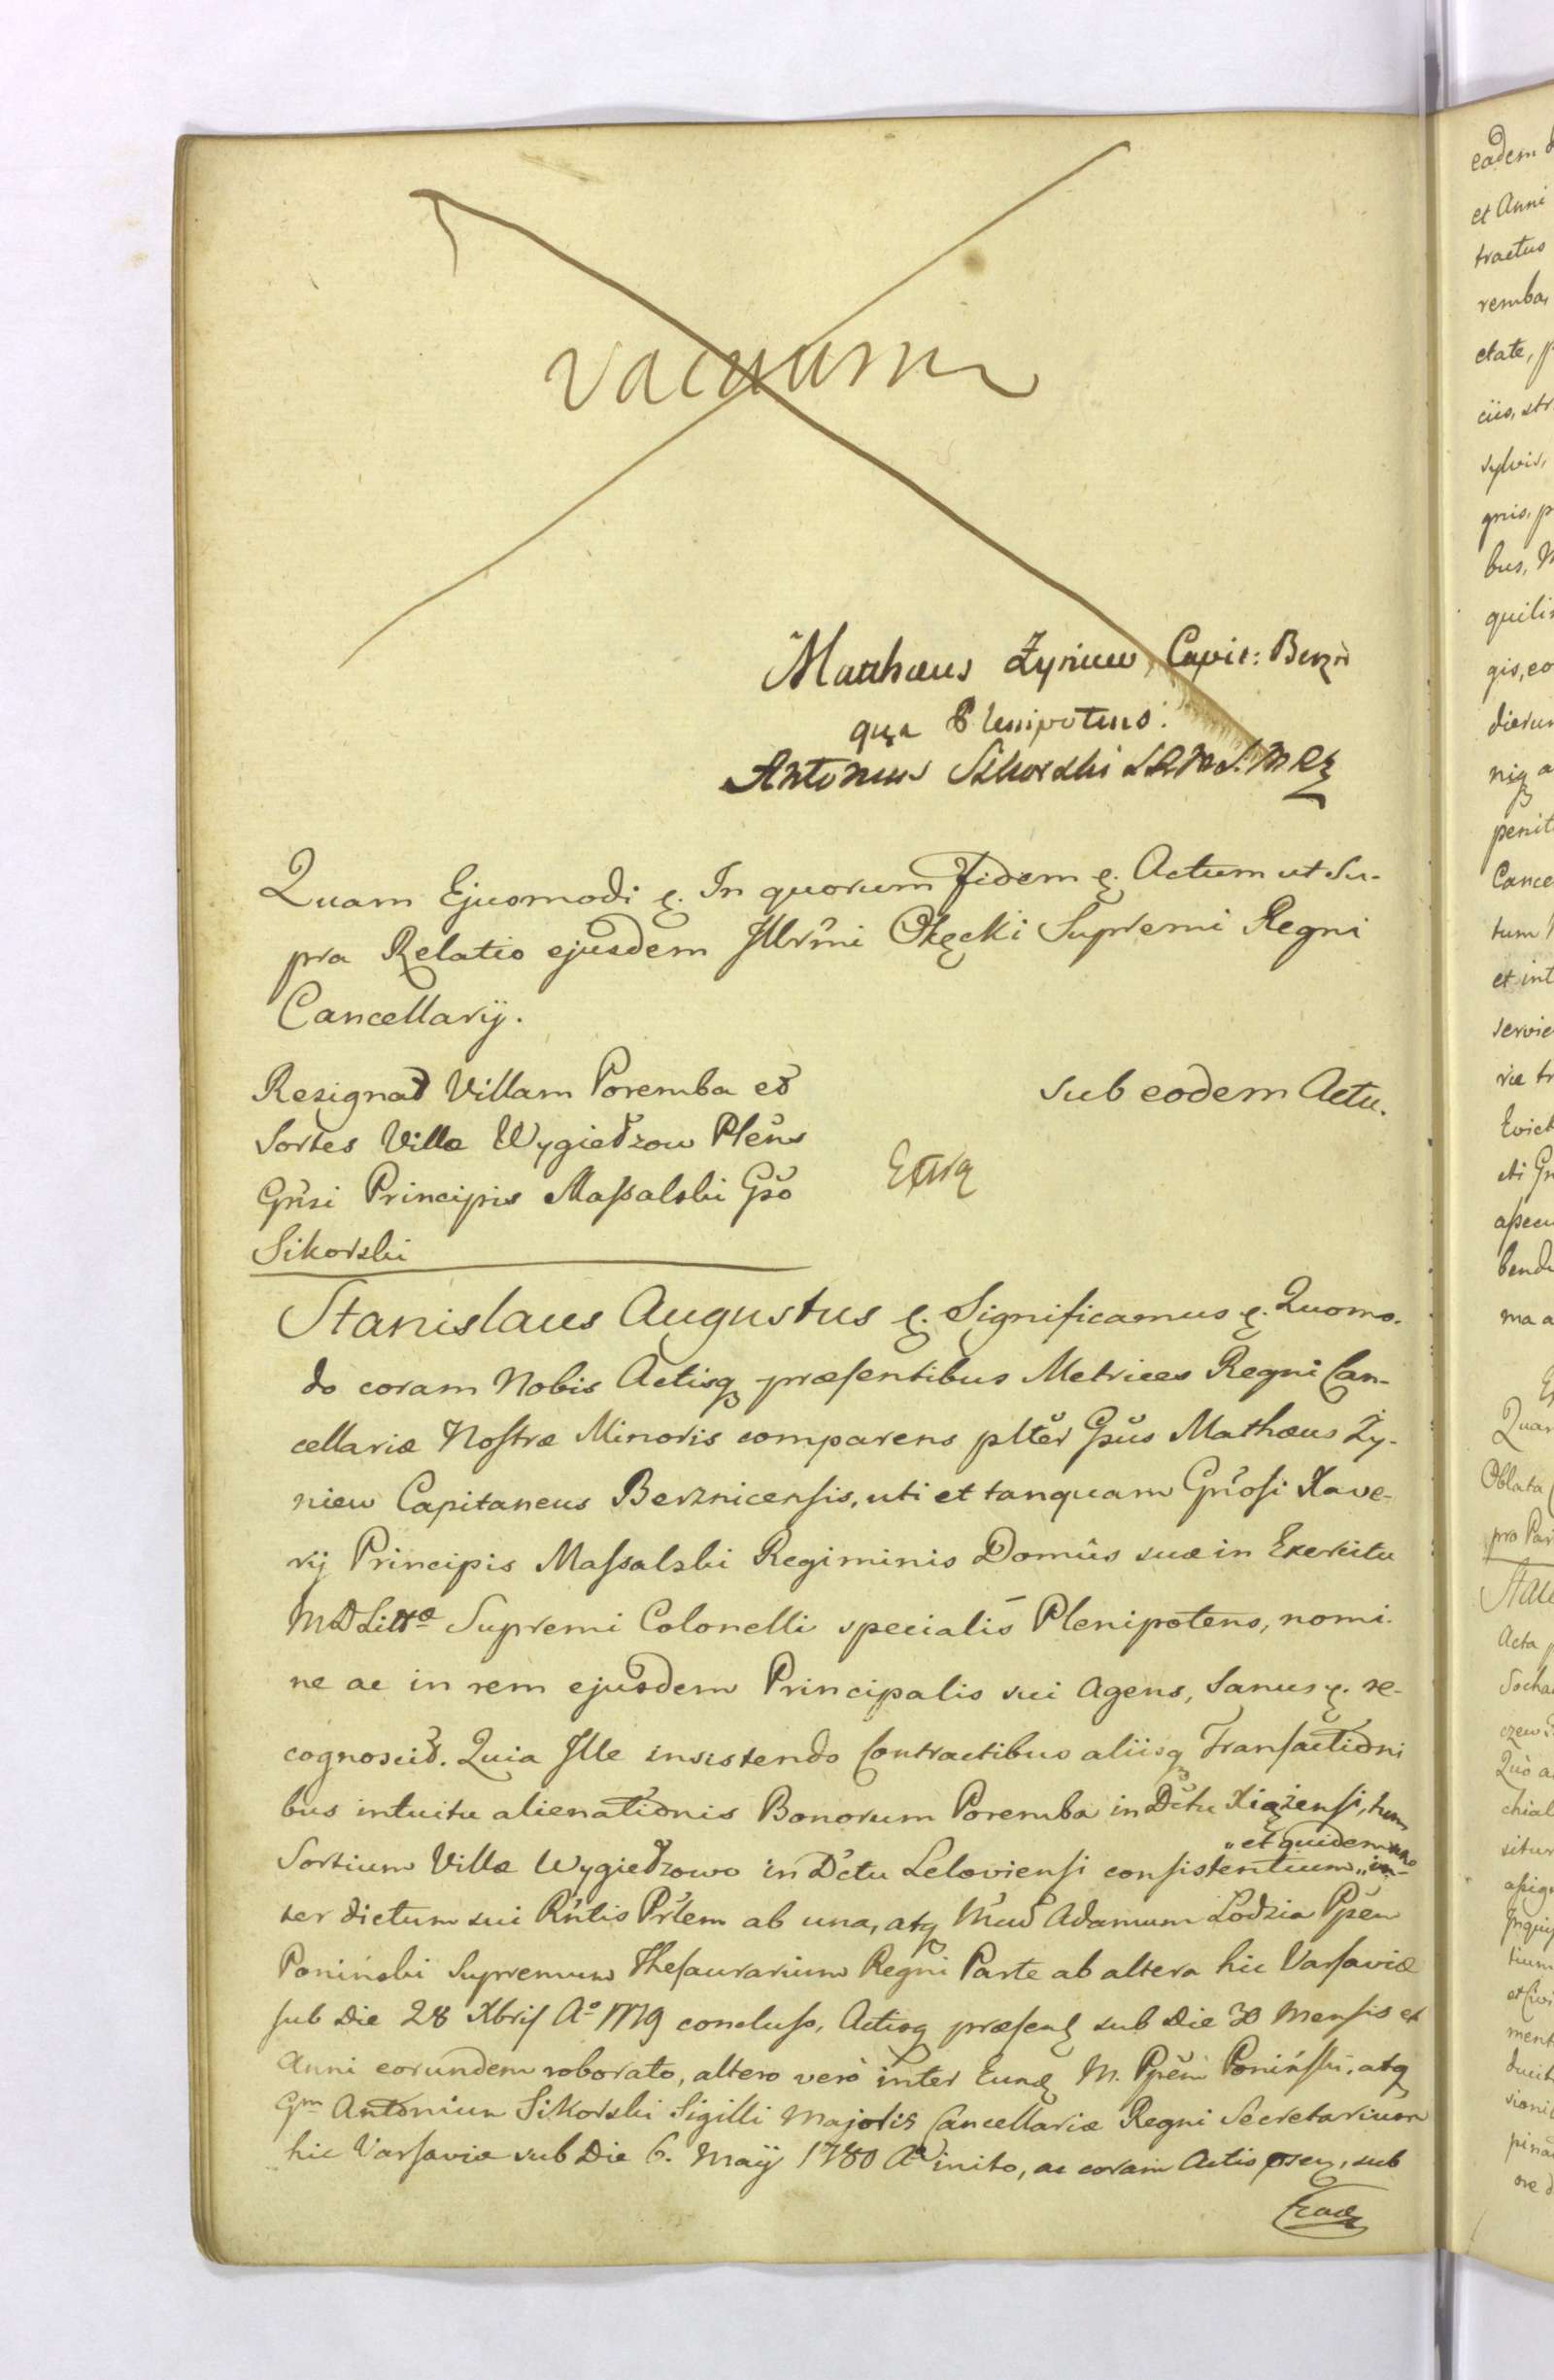 vacuum
Matthæus Zyniew, Capit: Berzn
qua Plenipotens.
Antonius Sikorski
Quam Ejusmodi &. In quorum Fidem &. Actum ut Su-
pra Relatio ejusdem Illrmi Okęcki Supremi Regni
Cancellarij.
Resignat Villam Poremba et
Sortes Villæ Wygiełzow Plens
Gnsi Principis Massalski Gso
Sikorski
sub eodem Actu.
Stanislaus Augustus &. Significamus &. Quomo-
do coram Nobis Actisq præsentibus Metrices Regni Can-
cellariæ Nostræ Minoris comparens plter Gsus Mathæus Zy-
niew Capitaneus Berznicensis, uti et tanquam Gnosi Xave-
rij Principis Massalski Regiminis Domûs suæ in Exercitu
MD Littæ Supremi Colonelli specialis Plenipotens, nomi-
ne ac in rem ejusdem Principalis sui Agens, Sanus &. re-
cognoscit. Quia Ille insistendo Contractibus aliisq Transactioni
bus intuitu alienationis Bonorum Poremba in Dctu Xiążensi, tum
Sortium Villæ Wygiełzowo in Dctu Leloviensi consistentium „et quidem uno „in-
ter dictum sui Rntis Prlem ab una, atq Mcum Adamum Lodzia Ppem
Poniński Supremum Thesaurarium Regni Parte ab altera hic Varsaviæ
sub Die 28 Xbris Aº 1779 concluso, Actisq præsent sub Die 30 Mensis et
Anni eorundem roborato, altero verò inter Eund M. Ppem Poniński, atq
Gm Antonium Sikorski Sigilli Majoris Cancellariæ Regni Secretarium
hic Varsaviæ sub Die 6. Maij 1780 Aº inito, ac coram Actis præn, sub
Ead
eadem
et Anni
tractus
remba,
etate, p
ciis, str
sylvis,
gnis, p
bus, M
quilin
gis, eo
dierum
niq a
penit
Cance
tum
et int
servie
ræ tr
Evict
sti Gn
assecu
bend
ma a
Quam
Oblata
pro Par
Acta p
Socha
czew
Quo a
chial
situr
assig
Inqui
tium
et Civi
ment
ducit
sioni
pina
ore d